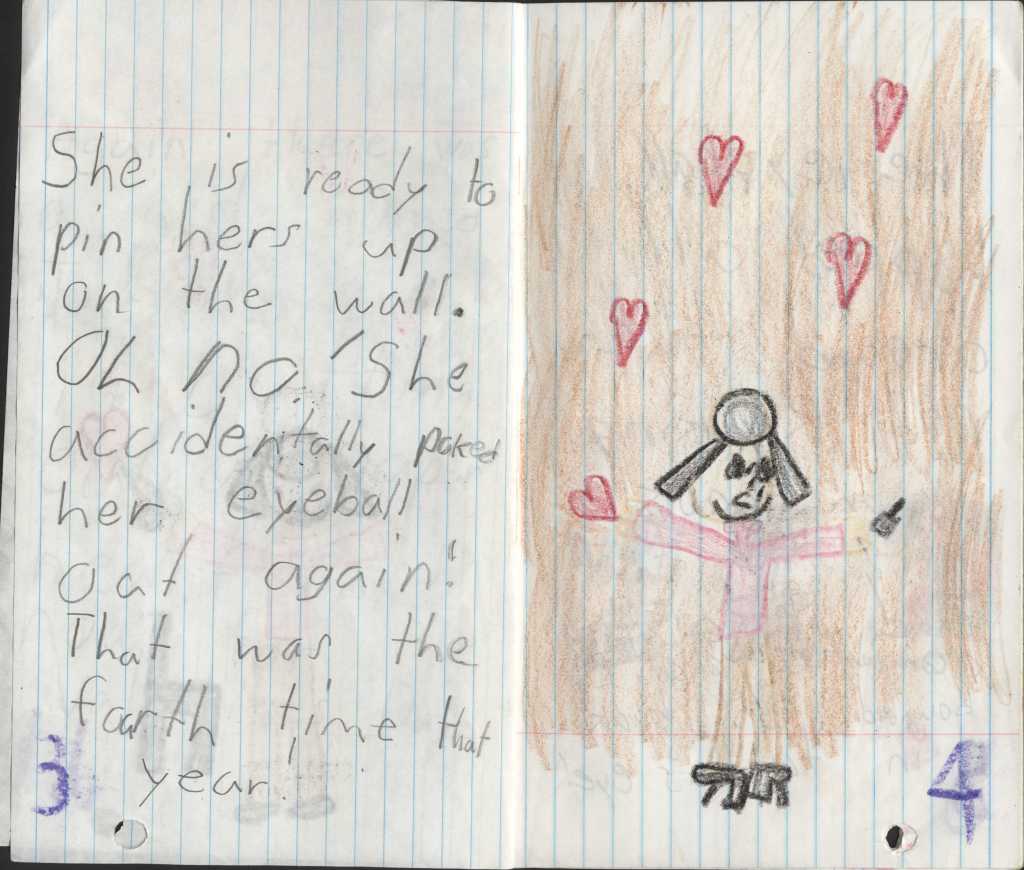 She is ready to
pin hers up
on the wall.
Oh no! She
accidentally poked
her eyeball
out again!
That was the
foarth time that
year.
3
4